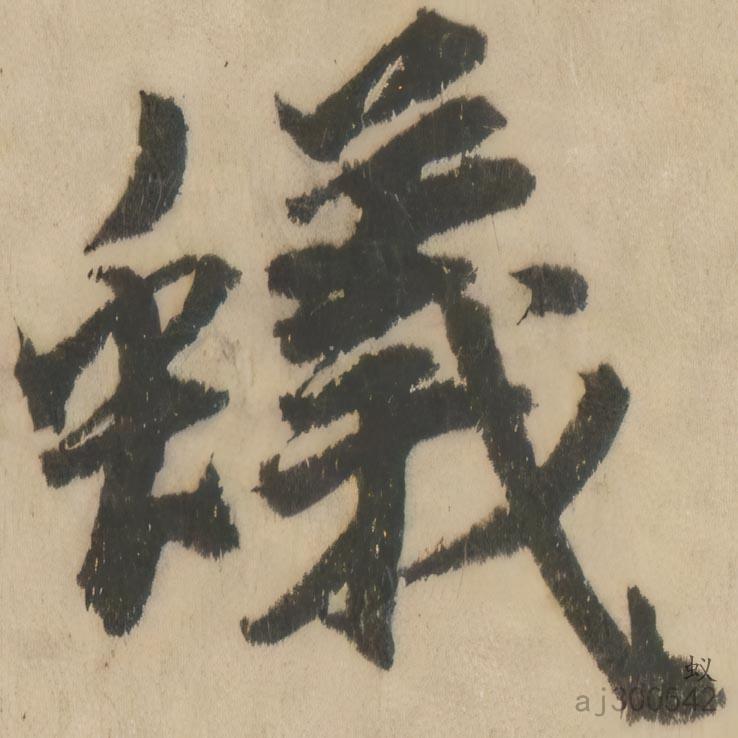 蟻
蚁
aj300542